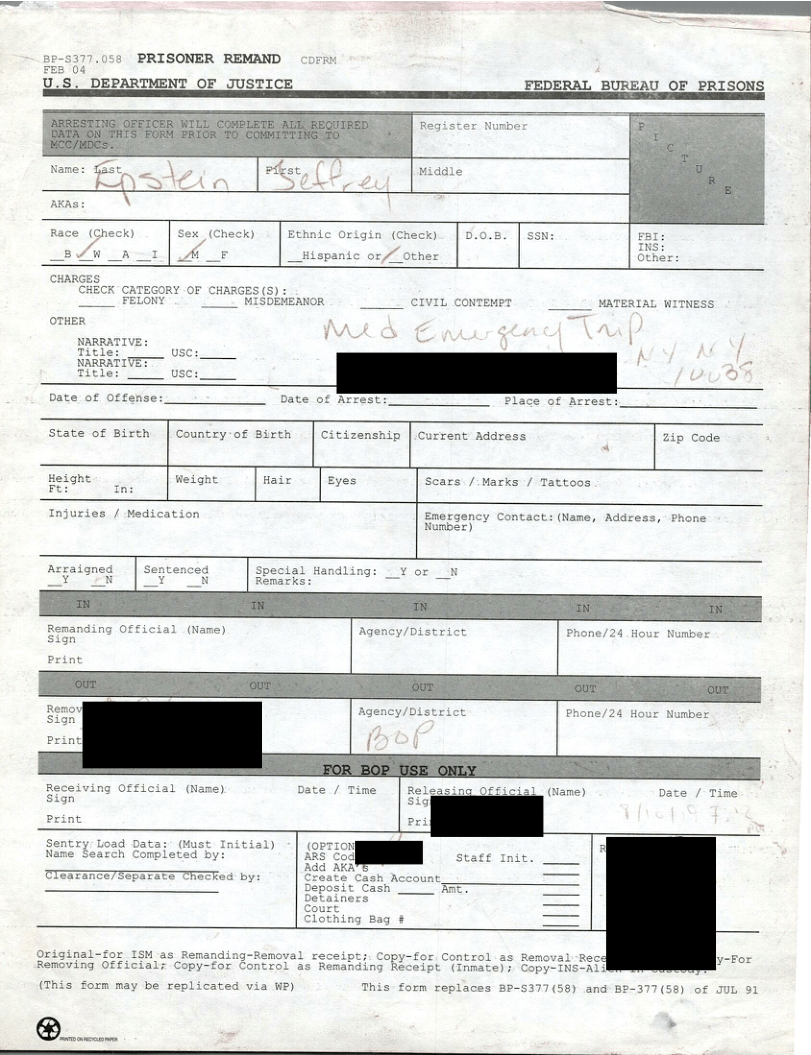 BP-S377.058 PRISONER REMAND CDFRM
FEB 04
U.S. DEPARTMENT OF JUSTICE FEDERAL BUREAU OF PRISONS
ARRESTING OFFICER WILL COMPLETE ALL REQUIRED
DATA ON THIS FORM PRIOR TO COMMITTING TO
MCC/MDCs.
Register Number
PICTURE
Name: Last Epstein First Jeffrey Middle
AKAs:
Race (Check) Sex (Check) Ethnic Origin (Check) D.O.B. SSN: FBI:
__B ✓W __A __I ✓M __F __Hispanic or ✓Other INS:
Other:
CHARGES
CHECK CATEGORY OF CHARGES(S):
_____ FELONY _____ MISDEMEANOR _____ CIVIL CONTEMPT _____ MATERIAL WITNESS
OTHER
Med Emergency Trip
NARRATIVE:
Title: _____ USC:_____
NARRATIVE:
Title: _____ USC:_____
NY NY
10038
Date of Offense:____________ Date of Arrest:____________ Place of Arrest:____________
State of Birth Country of Birth Citizenship Current Address Zip Code
Height Weight Hair Eyes Scars / Marks / Tattoos
Ft: In:
Injuries / Medication Emergency Contact:(Name, Address, Phone
Number)
Arraigned Sentenced Special Handling: __Y or __N
__Y __N __Y __N Remarks:
IN IN IN IN IN
Remanding Official (Name) Agency/District Phone/24 Hour Number
Sign
Print
OUT OUT OUT OUT OUT
Remov Agency/District Phone/24 Hour Number
Sign
Print BOP
FOR BOP USE ONLY
Receiving Official (Name) Date / Time Releasing Official (Name) Date / Time
Sign Sig 8/10/19
Print Pri
Sentry Load Data: (Must Initial) (OPTION R
Name Search Completed by: ARS Cod Staff Init. _____
Add AKA's _____
Clearance/Separate Checked by: Create Cash Account _____
Deposit Cash _____ Amt. _____
Detainers _____
Court _____
Clothing Bag # _____
Original-for ISM as Remanding-Removal receipt; Copy-for Control as Removal Rece y-For
Removing Official; Copy-for Control as Remanding Receipt (Inmate); Copy-INS-Alien in Custody.
(This form may be replicated via WP) This form replaces BP-S377(58) and BP-377(58) of JUL 91
PRINTED ON RECYCLED PAPER